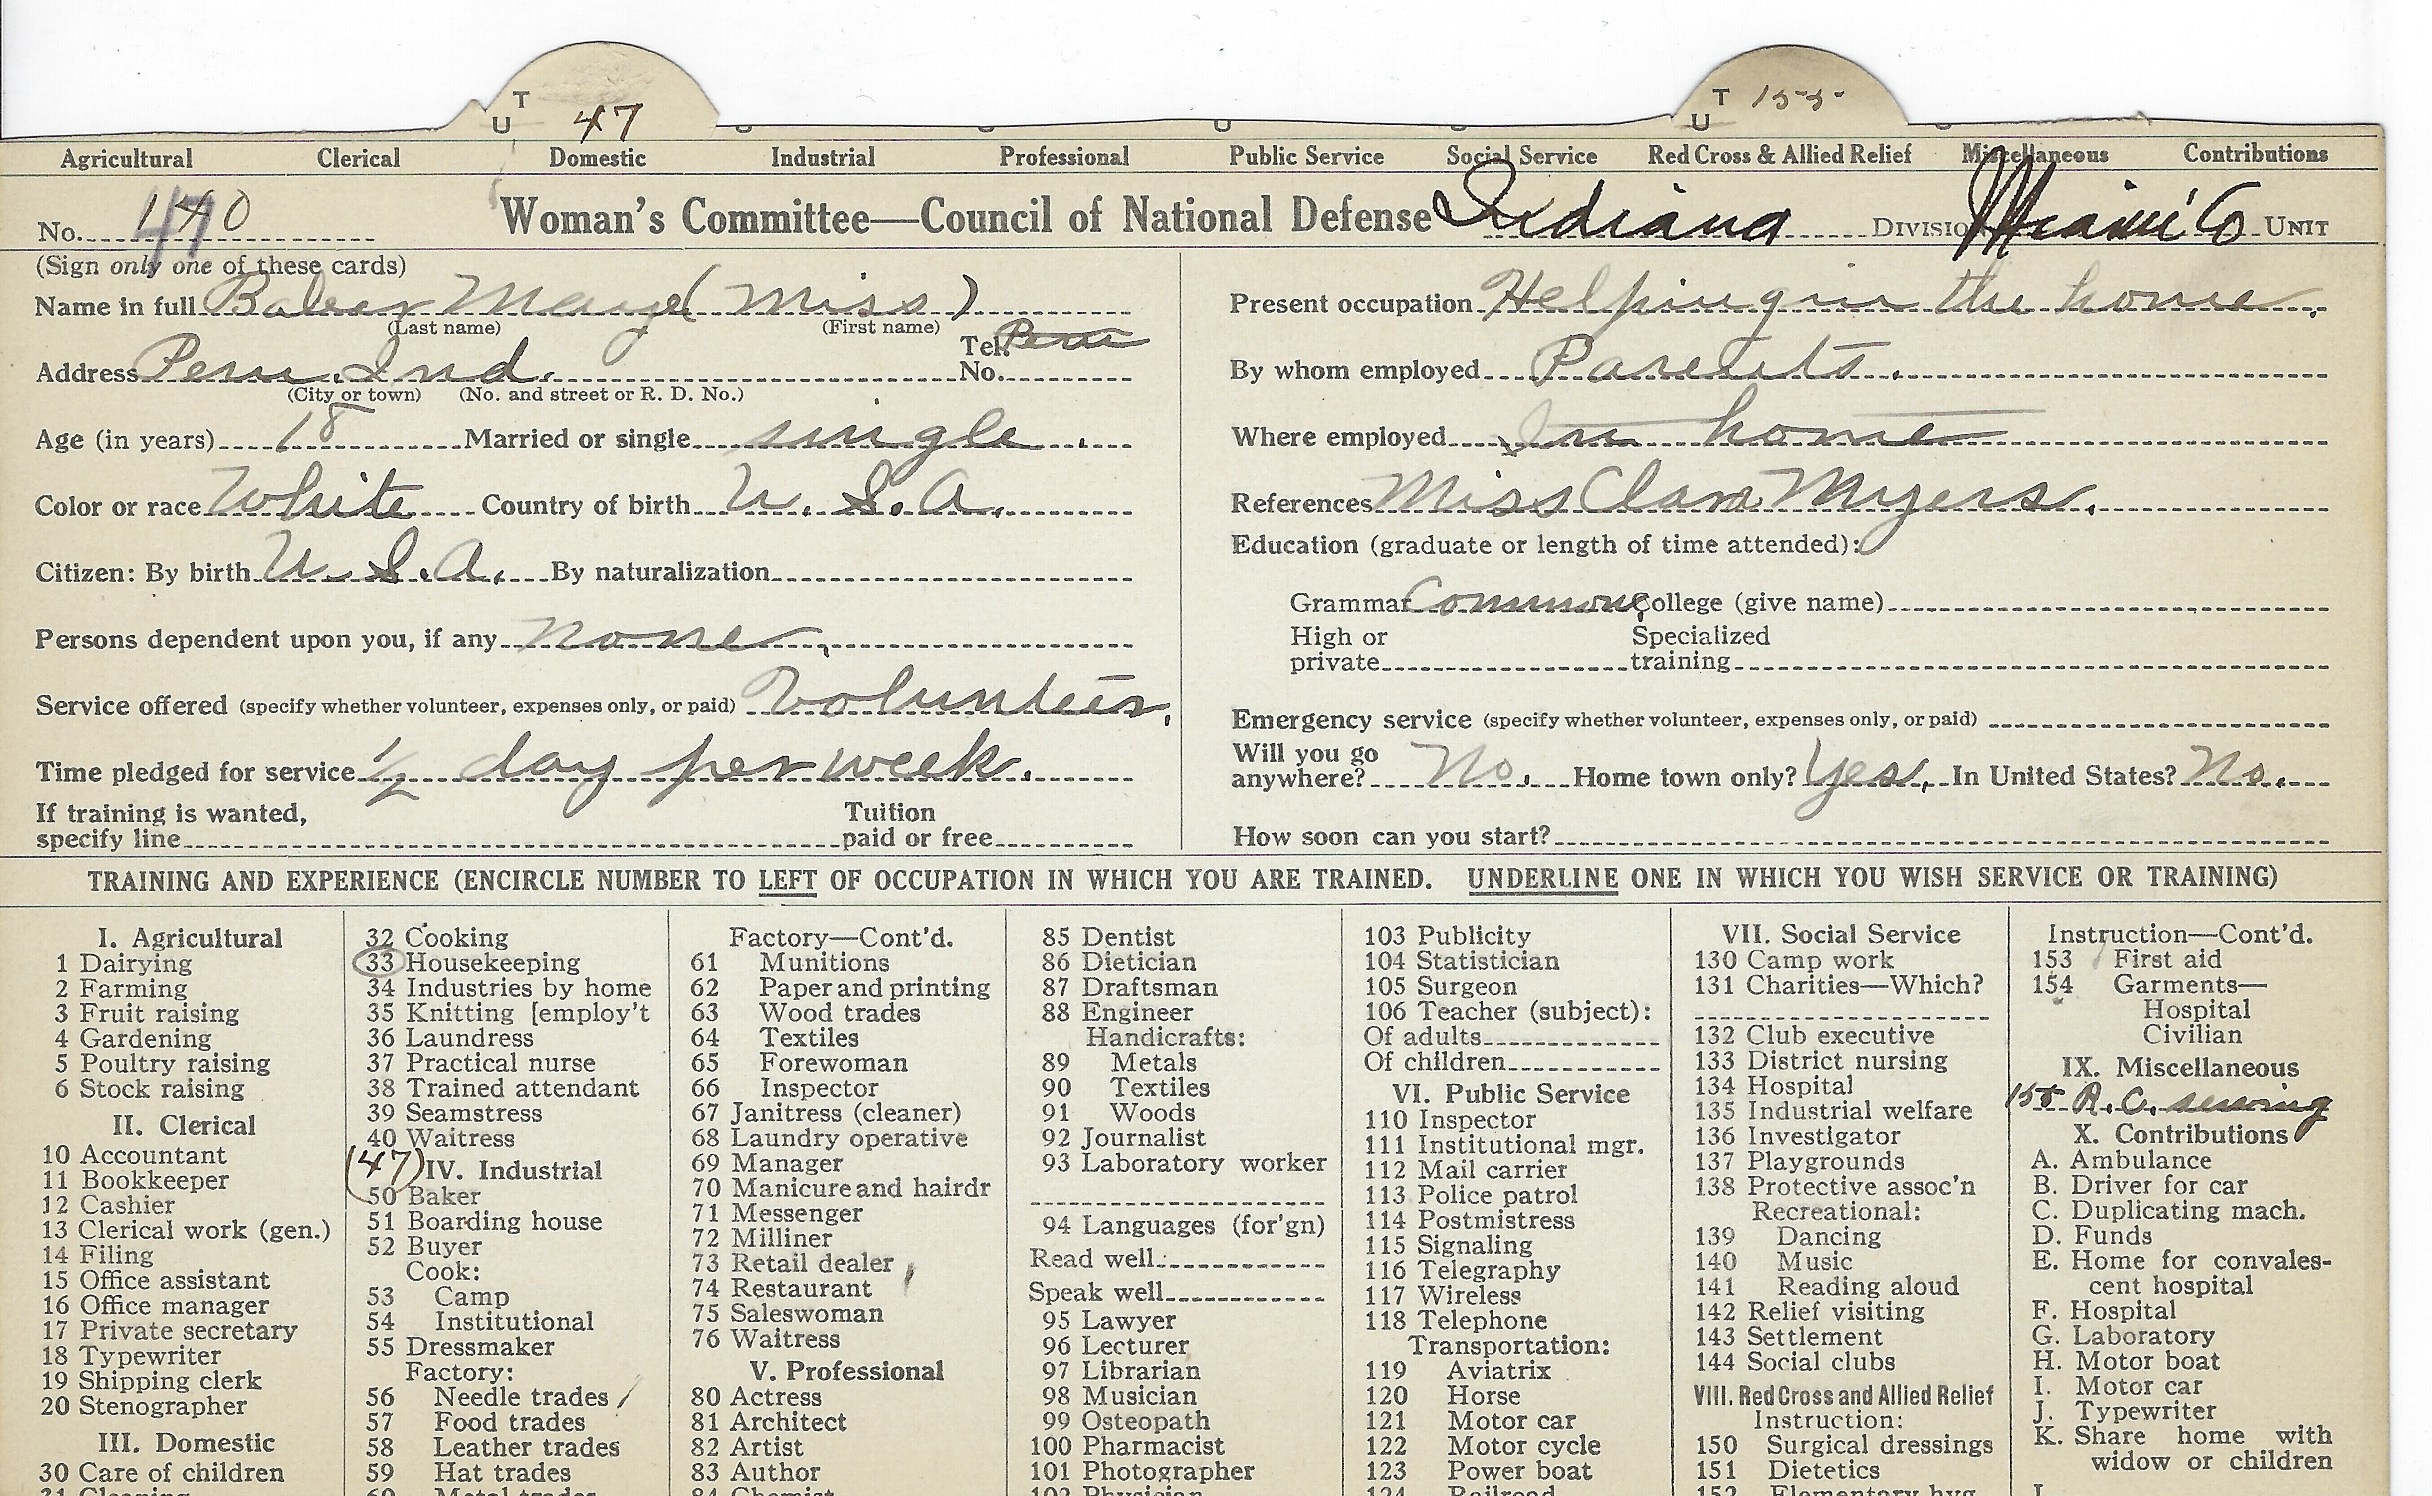 T T 155
U 47 U
Agricultural Clerical Domestic Industrial Professional Public Service Social Service Red Cross & Allied Relief Miscellaneous Contributions
No. 140 47 Woman's Committee—Council of National Defense Indiana Division Miami Co Unit
(Sign only one of these cards)
Name in full (Miss)
(Last name) (First name)
Address Peru, Ind. Tel. No. Peru
(City or town) (No. and street or R. D. No.)
Age (in years) 18 Married or single single.
Color or race White Country of birth U. S. A.
Citizen: By birth U. S. A. By naturalization
Persons dependent upon you, if any none.
Service offered (specify whether volunteer, expenses only, or paid) Volunteer.
Time pledged for service 1/2 day per week.
If training is wanted,
specify line Tuition paid or free
Present occupation Helping in the home.
By whom employed Parents.
Where employed In home
References Miss Clara Myers.
Education (graduate or length of time attended):
Grammar Common. College (give name)
High or private Specialized training
Emergency service (specify whether volunteer, expenses only, or paid)
Will you go anywhere? No. Home town only? Yes. In United States? No.
How soon can you start?
TRAINING AND EXPERIENCE (ENCIRCLE NUMBER TO LEFT OF OCCUPATION IN WHICH YOU ARE TRAINED. UNDERLINE ONE IN WHICH YOU WISH SERVICE OR TRAINING)
I. Agricultural
1 Dairying
2 Farming
3 Fruit raising
4 Gardening
5 Poultry raising
6 Stock raising
II. Clerical
10 Accountant
11 Bookkeeper
12 Cashier
13 Clerical work (gen.)
14 Filing
15 Office assistant
16 Office manager
17 Private secretary
18 Typewriter
19 Shipping clerk
20 Stenographer
III. Domestic
30 Care of children
31 Cleaning
32 Cooking
33 Housekeeping
34 Industries by home
35 Knitting [employ't
36 Laundress
37 Practical nurse
38 Trained attendant
39 Seamstress
40 Waitress
(47) IV. Industrial
50 Baker
51 Boarding house
52 Buyer
Cook:
53 Camp
54 Institutional
55 Dressmaker
Factory:
56 Needle trades
57 Food trades
58 Leather trades
59 Hat trades
60 Metal trades
Factory—Cont'd.
61 Munitions
62 Paper and printing
63 Wood trades
64 Textiles
65 Forewoman
66 Inspector
67 Janitress (cleaner)
68 Laundry operative
69 Manager
70 Manicure and hairdr
71 Messenger
72 Milliner
73 Retail dealer
74 Restaurant
75 Saleswoman
76 Waitress
V. Professional
80 Actress
81 Architect
82 Artist
83 Author
84 Chemist
85 Dentist
86 Dietician
87 Draftsman
88 Engineer
Handicrafts:
89 Metals
90 Textiles
91 Woods
92 Journalist
93 Laboratory worker
94 Languages (for'gn)
Read well
Speak well
95 Lawyer
96 Lecturer
97 Librarian
98 Musician
99 Osteopath
100 Pharmacist
101 Photographer
102 Physician
103 Publicity
104 Statistician
105 Surgeon
106 Teacher (subject):
Of adults
Of children
VI. Public Service
110 Inspector
111 Institutional mgr.
112 Mail carrier
113 Police patrol
114 Postmistress
115 Signaling
116 Telegraphy
117 Wireless
118 Telephone
Transportation:
119 Aviatrix
120 Horse
121 Motor car
122 Motor cycle
123 Power boat
124 Railroad
VII. Social Service
130 Camp work
131 Charities—Which?
132 Club executive
133 District nursing
134 Hospital
135 Industrial welfare
136 Investigator
137 Playgrounds
138 Protective assoc'n
Recreational:
139 Dancing
140 Music
141 Reading aloud
142 Relief visiting
143 Settlement
144 Social clubs
VIII. Red Cross and Allied Relief
Instruction:
150 Surgical dressings
151 Dietetics
152 Elementary hyg.
Instruction—Cont'd.
153 First aid
154 Garments—
Hospital
Civilian
IX. Miscellaneous
155 R. C. sewing
X. Contributions
A. Ambulance
B. Driver for car
C. Duplicating mach.
D. Funds
E. Home for convales-
cent hospital
F. Hospital
G. Laboratory
H. Motor boat
I. Motor car
J. Typewriter
K. Share home with
widow or children
L.